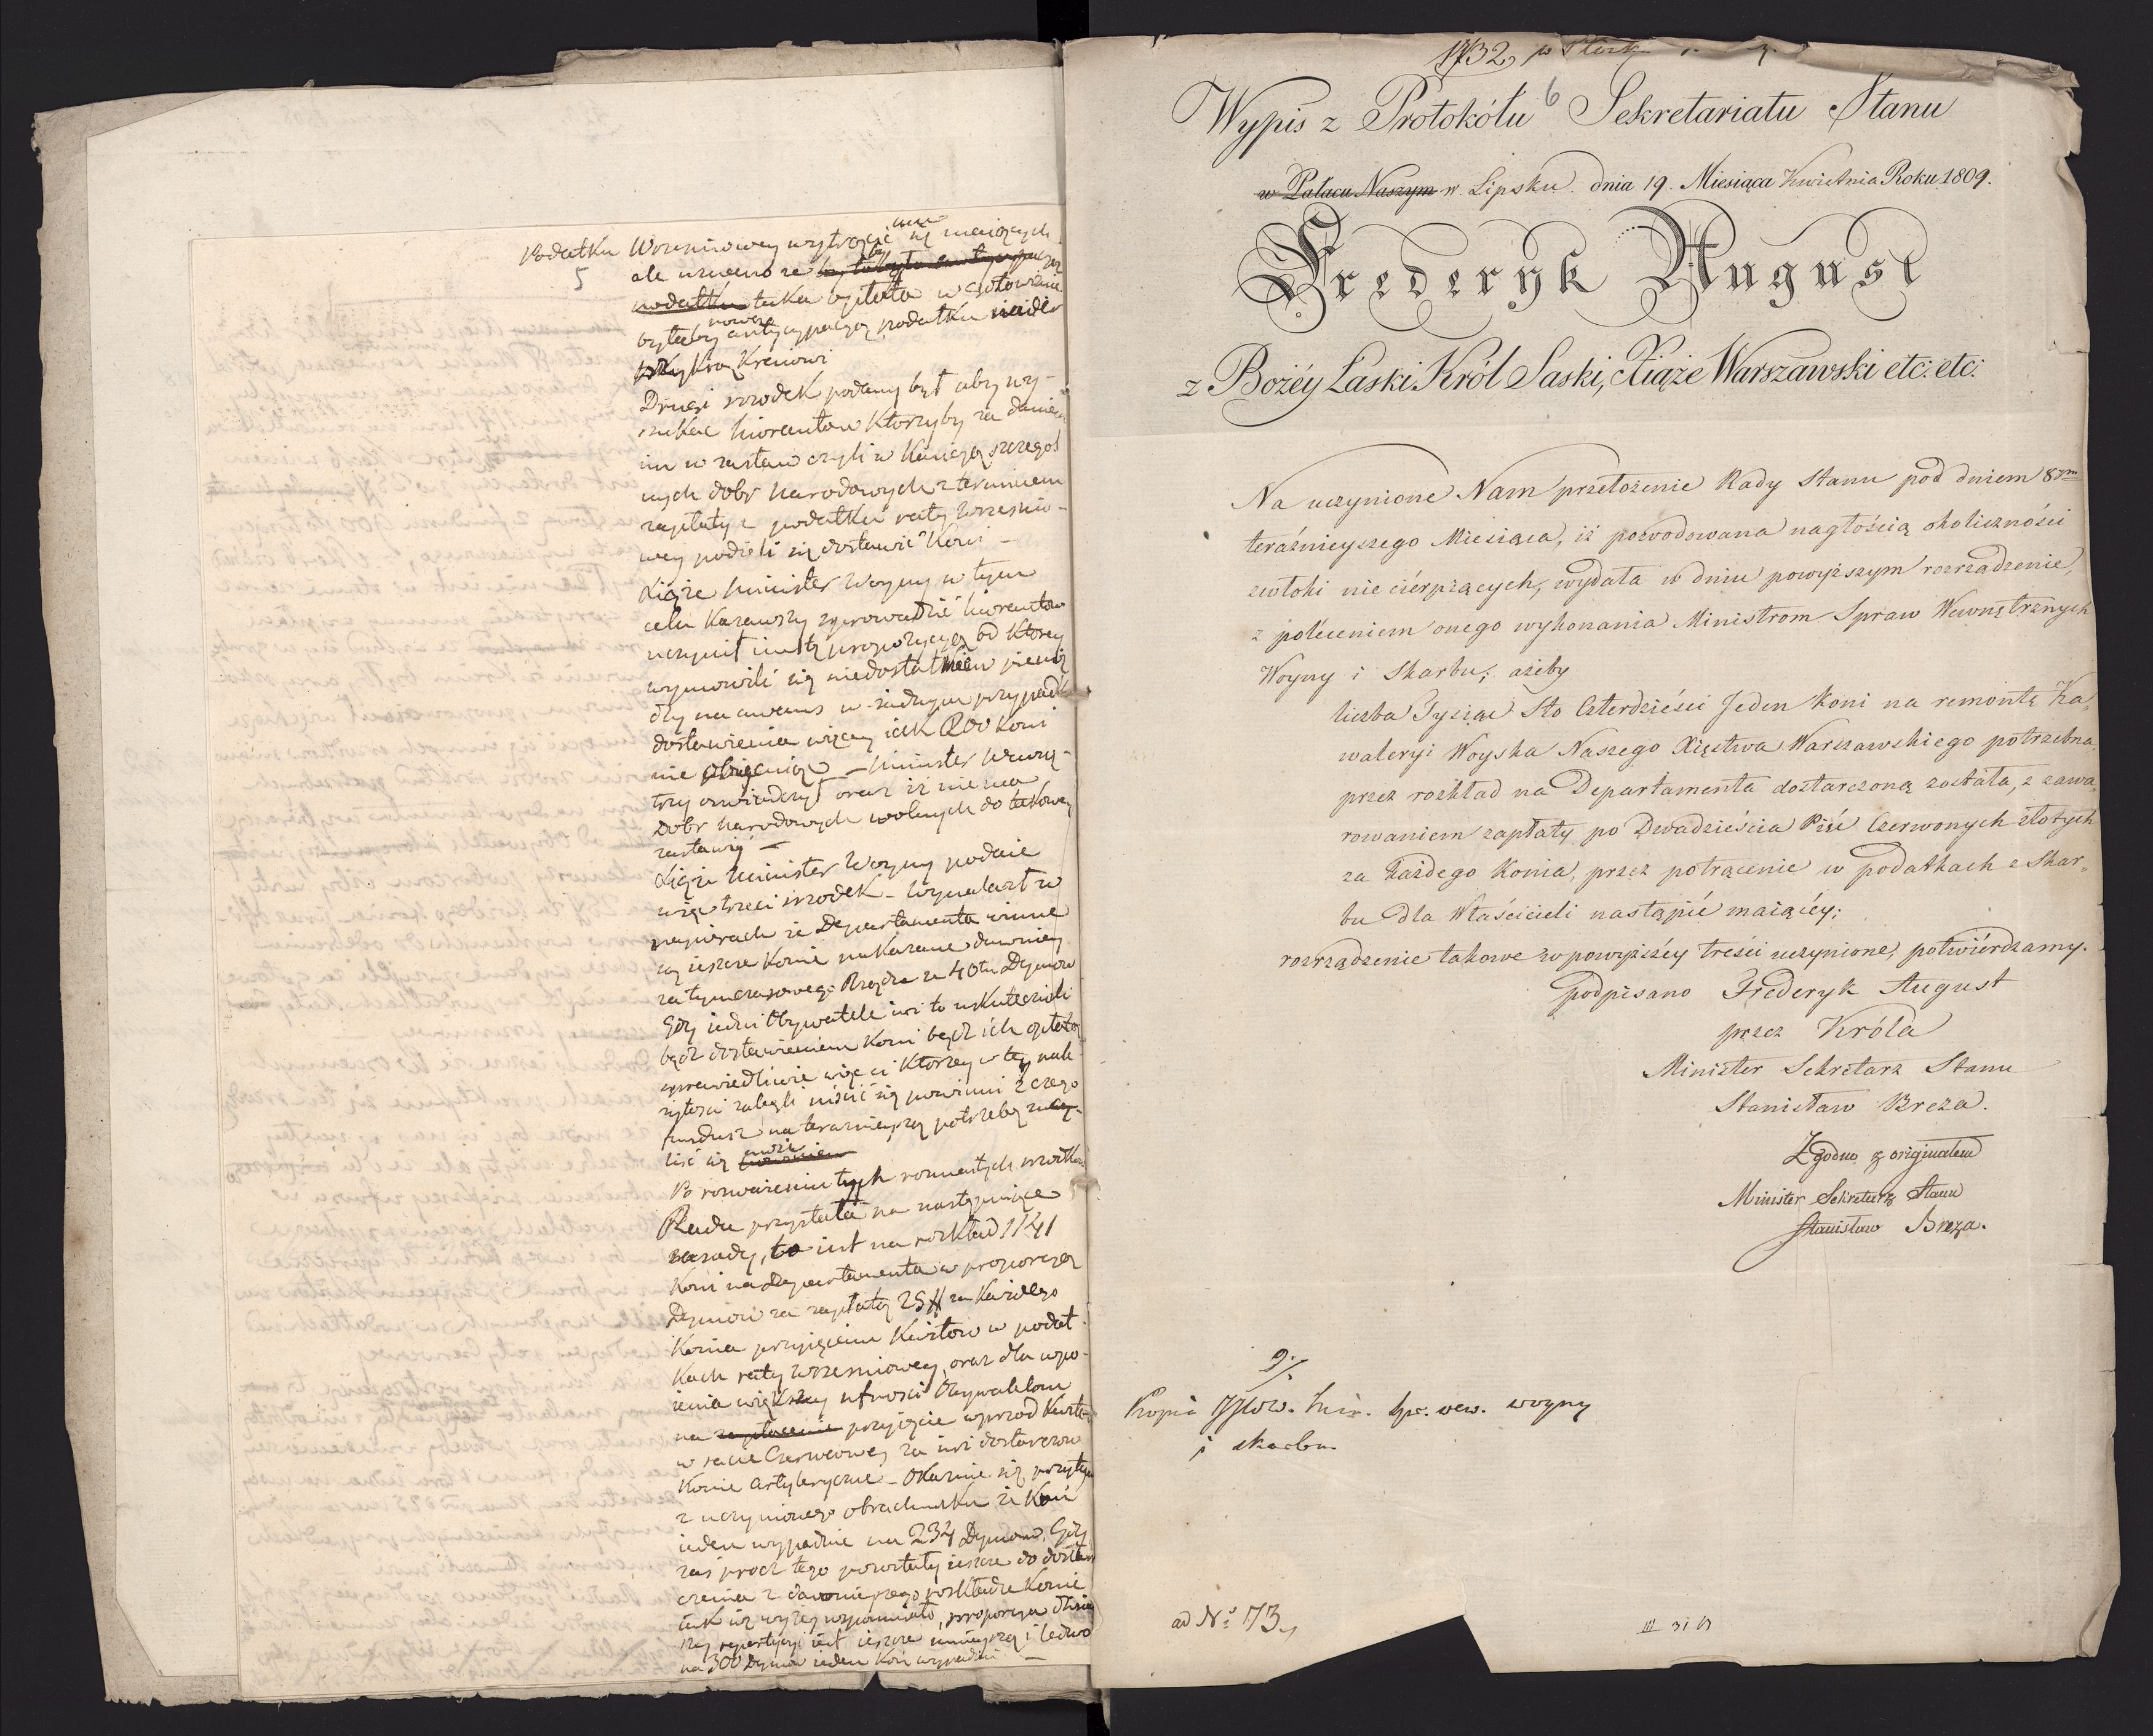 Podatku Wrzesniowey wytrącić się maiących
5
ale uznano że
podatku taka wypłata w gotowiznie
byłaby nową antycypacyą podatku nader
przykrą Kraiowi
Drugi srzodek podany był aby wy-
szukać liwerantow ktorzyby za daniem
im w zastaw czyli w kaucyą szczegol
nych dobr narodowych z terminem
zapłaty z podatku raty Wrzesnio-
wey podieli się dostawić Koni -
Xiąże Minister Woyny w tym
celu kazawszy zprowadzić liwerantow
uczynił im tę propozycyą od ktorey
wymowili się niedostatkiem pienię
dzy na awans w żadnym przypadku
dostawienia więcey iak 200 koni
nie obiecuiąc - Minister Wewnę-
trzny oswiadczył oraz iż nie ma
Dobr narodowych wolnych do takowey
zastawy -
Xiąże Minister Woyny podaie
więc trzeci srzodek - Wynalazł w
papierach że Departamenta winne
są ieszcze Konie nakazane dawniey
za tymczasowego Rządu z 40tu Dymow
Gdy iedni Obywatele iuż to uskutecznili
bądź dostawieniem Koni bądź ich opłatą
sprawiedliwie więc ci ktorzy w tey nale
żytości zalegli uiścić się powinni z czego
fundusz na teraznieyszą potrzebę znay-
Po rozważeniu tych rozmaitych srzodkow
Rada przystała na następuiące
zasady, to iest na rozkład 1141
Koni na Departamenta w proporcyą
Dymow za zapłatą 25 # za każdego
Konia przyięciem Kwitow w podat
kach raty Wrzesniowey, oraz dla wpo-
ienia większey ufnosci Obywatelom
na zapłacenie przyięcie wprzod Kwitow
w racie Czerwcowey za iuż dostarczone
Konie artyleryczne - Okazuie się przytym
z uczynionego obrachunku że Koń
ieden wypadnie na 234 Dymow. Gdy
zaś procz tego pozostały ieszcze do dostar
czenia z dawnieyszego rozkładu Konie
iak się wyżey wspomniało, proporcya dzisiey
szey repartycyi iest ieszcze mnieyszą i ledwo
na 300 Dymow ieden Koń wypadnie -
1732
6
Wypis z Protokółu Sekretariatu Stanu
w Pałacu Naszym w Lipsku dnia 19. Miesiąca Kwietnia Roku 1809.
Frederyk August
z Bożéy Łaski Król Saski, Xiąże Warszawski etc. etc.
Na uczynione Nam przełożenie Rady Stanu pod dniem 8ym
teraźnieyszego Miesiąca, iż powodowana nagłością okoliczności
zwłoki nie cierpiących, wydała w dniu powyższym rozrządzenie,
z poleceniem onego wykonania Ministrom Spraw Wewnętrznych
Woyny i Skarbu; ażeby
liczba Tysiąc Sto Czterdzieści Jeden Koni na remontę Ka„
waleryi Woyska Naszego Xięstwa Warszawskiego potrzebna,
przez rozkład na Departamenta dostarczoną została, z zawa„
rowaniem zapłaty po Dwadzieścia Pięć Czerwonych złotych
za każdego Konia, przez potrącenie w podatkach z Skar„
bu dla Właścicieli nastąpić maiącéy;
rozrządzenie takowe w powyższéy treści uczynione, potwiérdzamy.
podpisano Frederyk August
przez Króla
Minister Sekretarz Stanu
Stanisław Breza.
Zgodno z originałem
Minister Sekretarz Stanu
Stanisław Breza.
9/.
Kopia JJWW. Min. Spr. wew. woyny
i skarbu
ad No 173
III 31 19